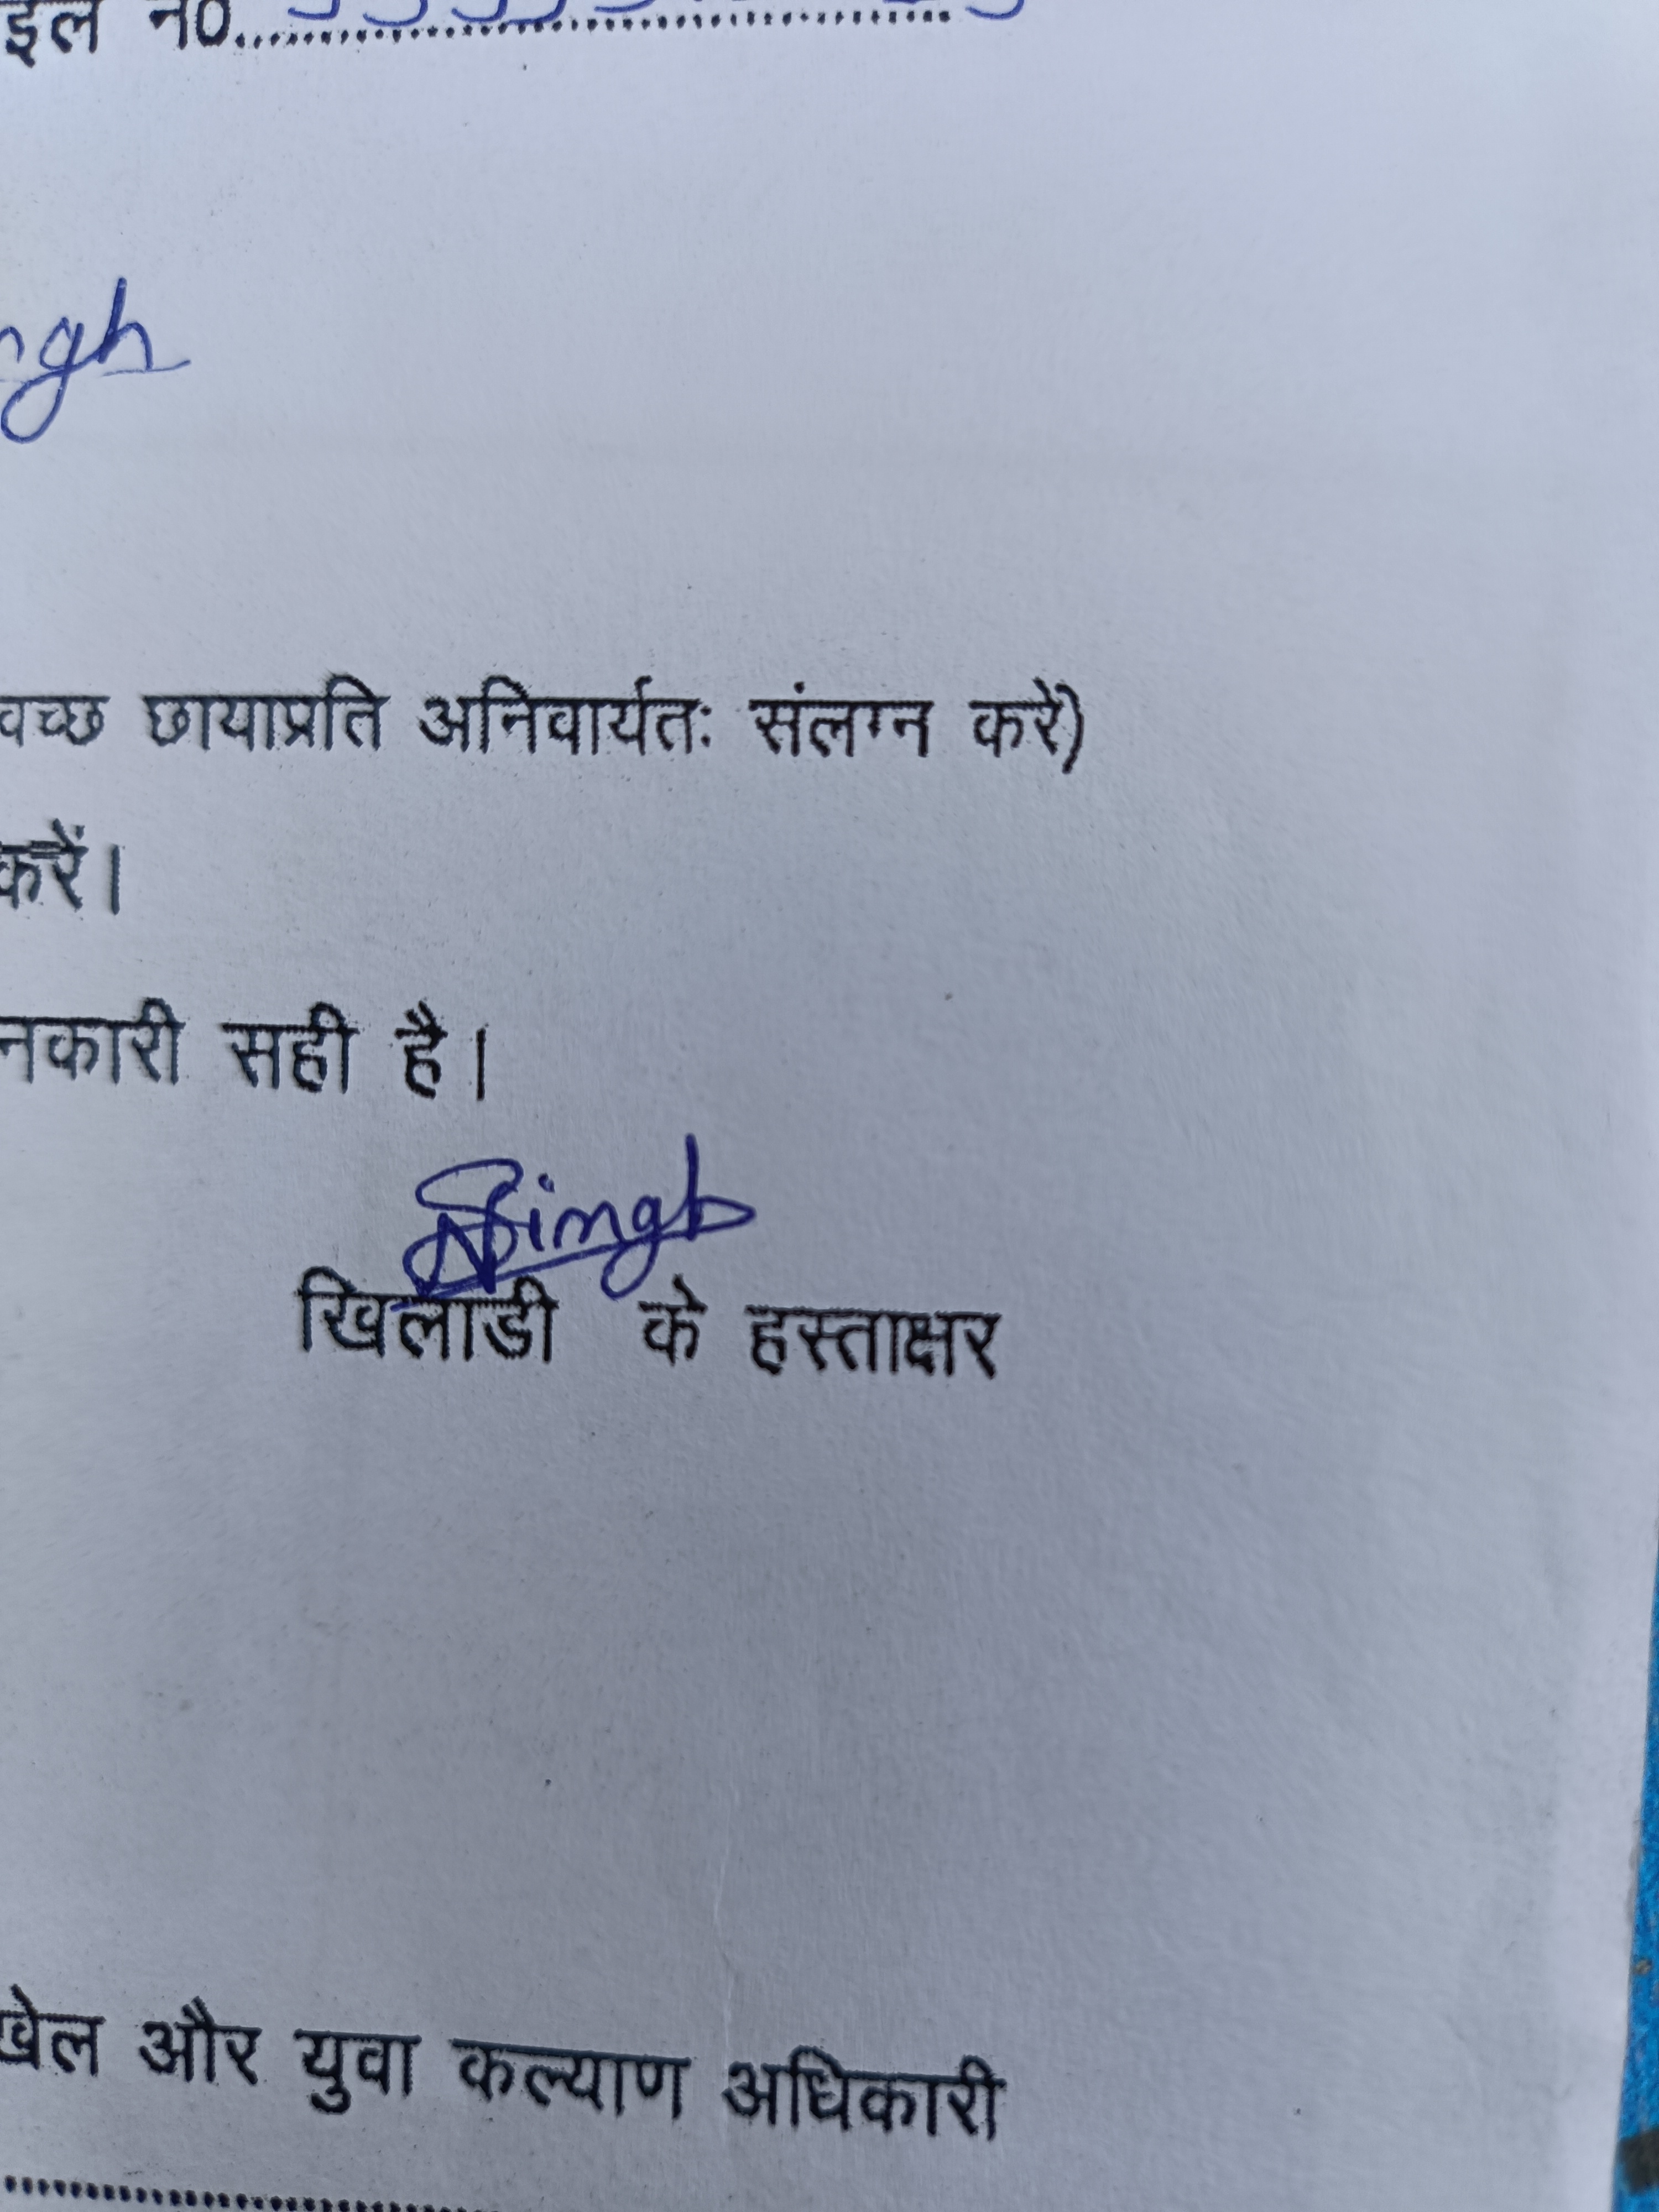 इल नं0
ngh
वच्छ छायाप्रति अनिवार्यतः संलग्न करें)
करें।
नकारी सही है।
Singh
खिलाडी के हस्ताक्षर
खेल और युवा कल्याण अधिकारी